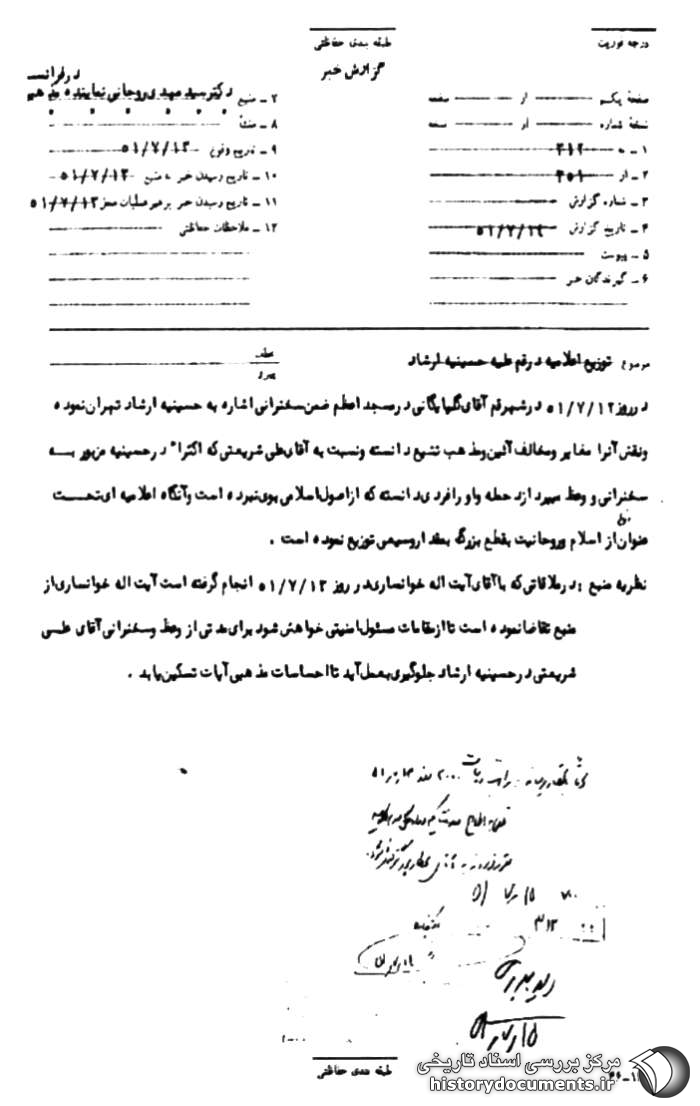 درجه فوریت
طبقه بندی حفاظتی
گزارش خبر
صفحهٔ یکم از صفحه
نسخهٔ شماره از نسخه
۱ ـ به ۳۱۲
۲ ـ از ۳۵۱
۳ ـ شماره گزارش
۴ ـ تاریخ گزارش ۵۱/۷/۱۴
۵ ـ پیوست
۶ ـ گیرندگان خبر
در فرانسه
۷ ـ منبع دکتر سید مهدی روحانی نماینده مذهبی
۸ ـ منشأ
۹ ـ تاریخ وقوع ۵۱/۷/۱۳
۱۰ ـ تاریخ رسیدن خبر به منبع ۵۱/۷/۱۳
۱۱ ـ تاریخ رسیدن خبر برهبر عملیات ۵۱/۷/۱۳
۱۲ ـ ملاحظات حفاظتی
موضوع توزیع اعلامیه در قم علیه حسینیه ارشاد
عطف
پیرو
در روز ۵۱/۷/۱۲ در شهر قم آقای گلپایگانی در مسجد اعظم ضمن سخنرانی اشاره به حسینیه ارشاد تهران نموده
و نقش آنرا مغایر و مخالف آئین و مذهب تشیع دانسته و نسبت به آقای علی شریعتی که اکثرا" در حسینیه مزبور به
سخنرانی و وعظ میپردازد حمله و او را فردی دانسته که از اصول اسلامی بوئی نبرده است و آنگاه اعلامیه ای تحت
عنوان از اسلام و روحانیت بقطع بزرگ بمقدار وسیعی توزیع نموده است .
نظریه منبع : در ملاقاتی که با آقای آیت اله خوانساری در روز ۵۱/۷/۱۳ انجام گرفته است آیت اله خوانساری از
منبع تقاضا نموده است تا از مقامات مسئول امنیتی خواهش شود برای مدتی از وعظ و سخنرانی آقای علی
شریعتی در حسینیه ارشاد جلوگیری بعمل آید تا احساسات مذهبی آیات تسکین یابد .
۳۱۲
طبقه بندی حفاظتی
مرکز بررسی اسناد تاریخی
historydocuments.ir